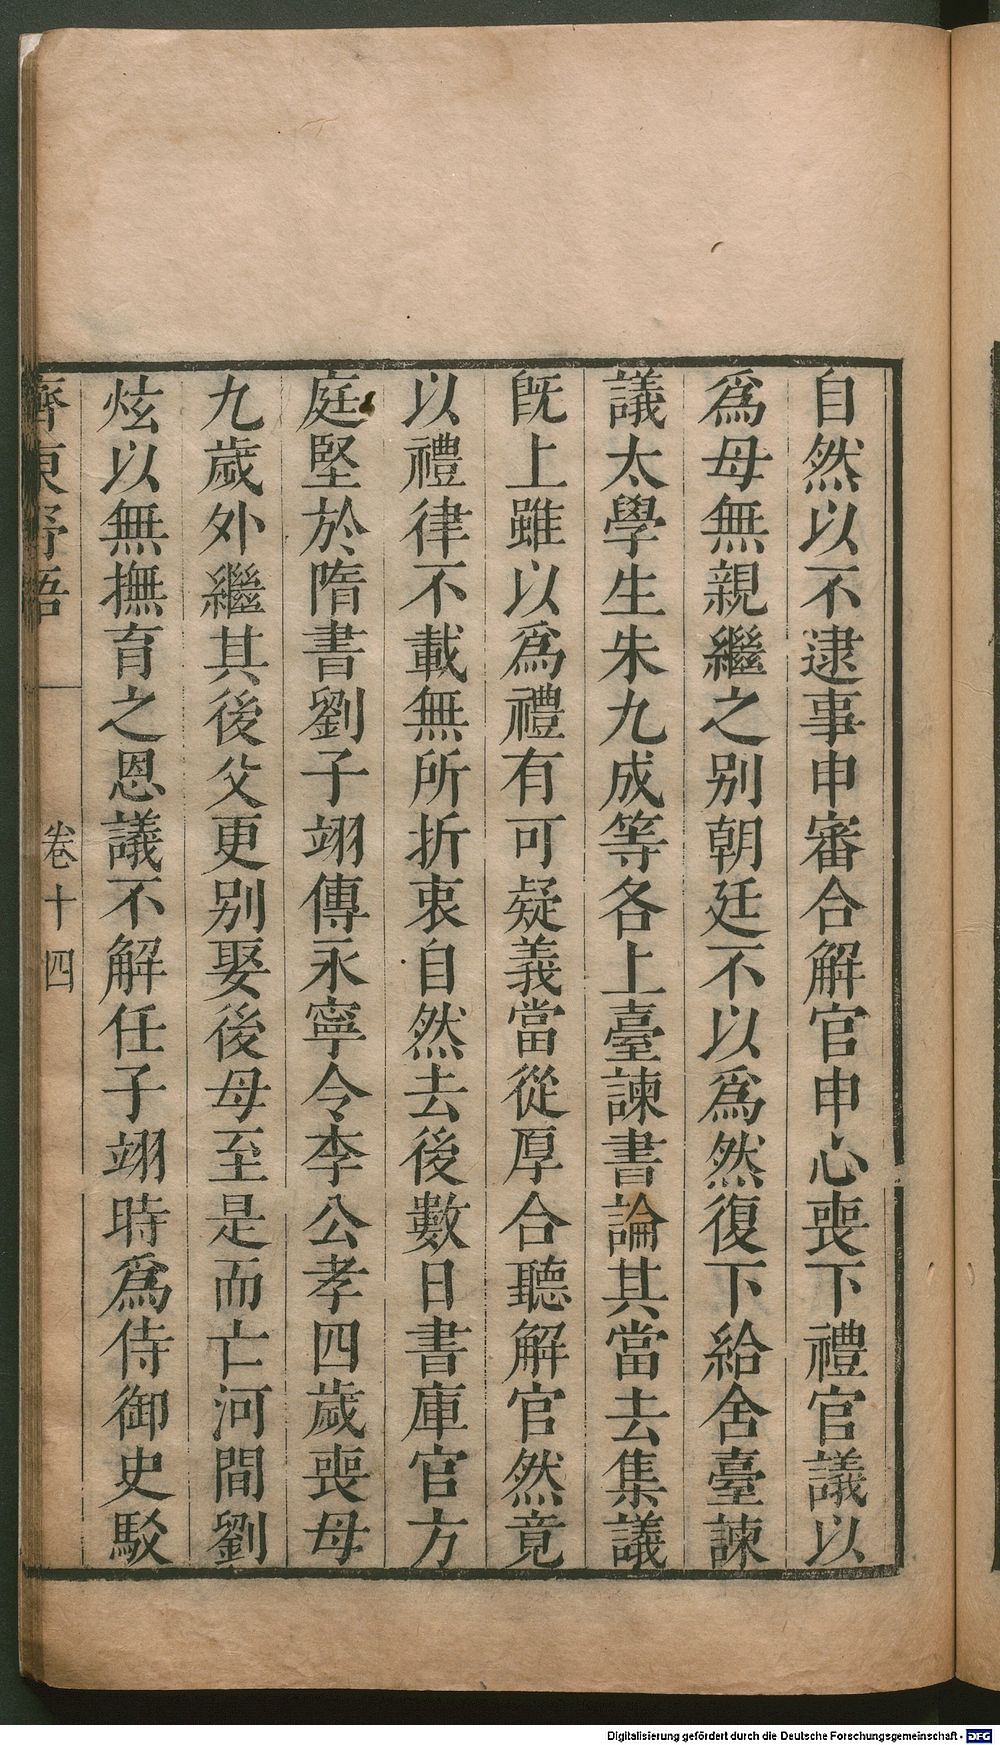 自然以不逮事申審合解官申心喪下禮官議以
爲母無親繼之别朝廷不以爲然復下給舍臺諫
議太學生朱九成等各上臺諫書論其當去集議
旣上雖以爲禮有可疑義當從厚合聽解官然竟
以禮律不載無所折衷自然去後數日書庫官方
庭堅於隋書劉子翊傳永寧令李公孝四歲喪母
九歲外繼其後父更别娶後母至是而亡河間劉
炫以無撫育之恩議不解任子翊時爲侍御史駁
齊東野語
卷十四
Digitalisierung gefördert durch die Deutsche Forschungsgemeinschaft - DFG